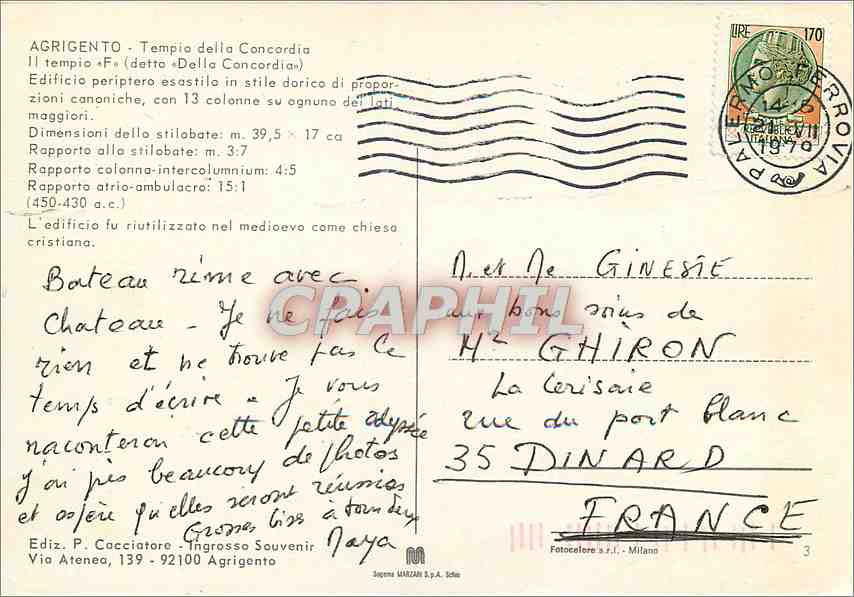 AGRIGENTO - Tempio della Concordia
Il tempio «F» (detto «Della Concordia»)
Edificio periptero esastilo in stile dorico di propor-
zioni canoniche, con 13 colonne su ognuno dei lati
maggiori.
Dimensioni dello stilobate: m. 39,5 × 17 ca
Rapporto allo stilobate: m. 3:7
Rapporto colonna-intercolumnium: 4:5
Rapporto atrio-ambulacro: 15:1
(450-430 a.c.)
L'edificio fu riutilizzato nel medioevo come chiesa
cristiana.
Bateau rime avec
Chateau - Je ne fais
rien et ne trouve pas le
temps d'écrire. Je vous
raconterai cette petite odyssée
J'ai pris beaucoup de photos
et espère qu'elles seront réussies
Grosses bises à tous deux
Maya
Ediz. P. Cacciatore - Ingrosso Souvenir
Via Atenea, 139 - 92100 Agrigento
LIRE 170
REPUBBLICA
ITALIANA
PALERMO FERROVIA
14-5
21 VII
1979
M. et Me GINESTE
aux bons soins de
GHIRON
La Cerisaie
rue du port blanc
35 DINARD
FRANCE
Fotocelere s.r.l. - Milano
3
M
Sagoma MARZARI S.p.A. Schio
CPAPHIL